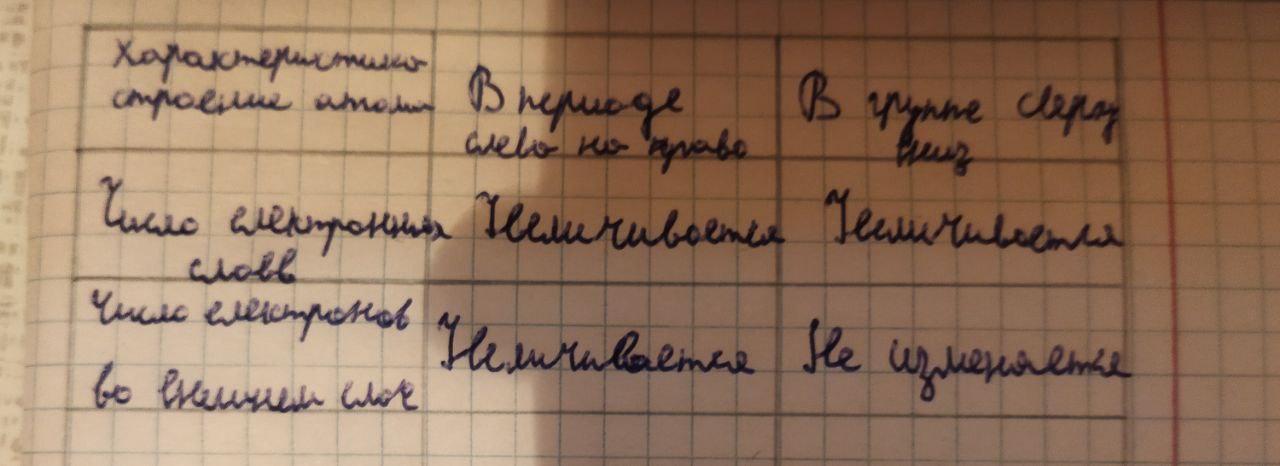 Характеристика
строение атома
В периоде
слево на право
В группе сверху
вниз
Число електронных
слоёв
Увеличивается
Увеличивается
Число електронов
во внешнем слое
Увеличивается
Не изменяется